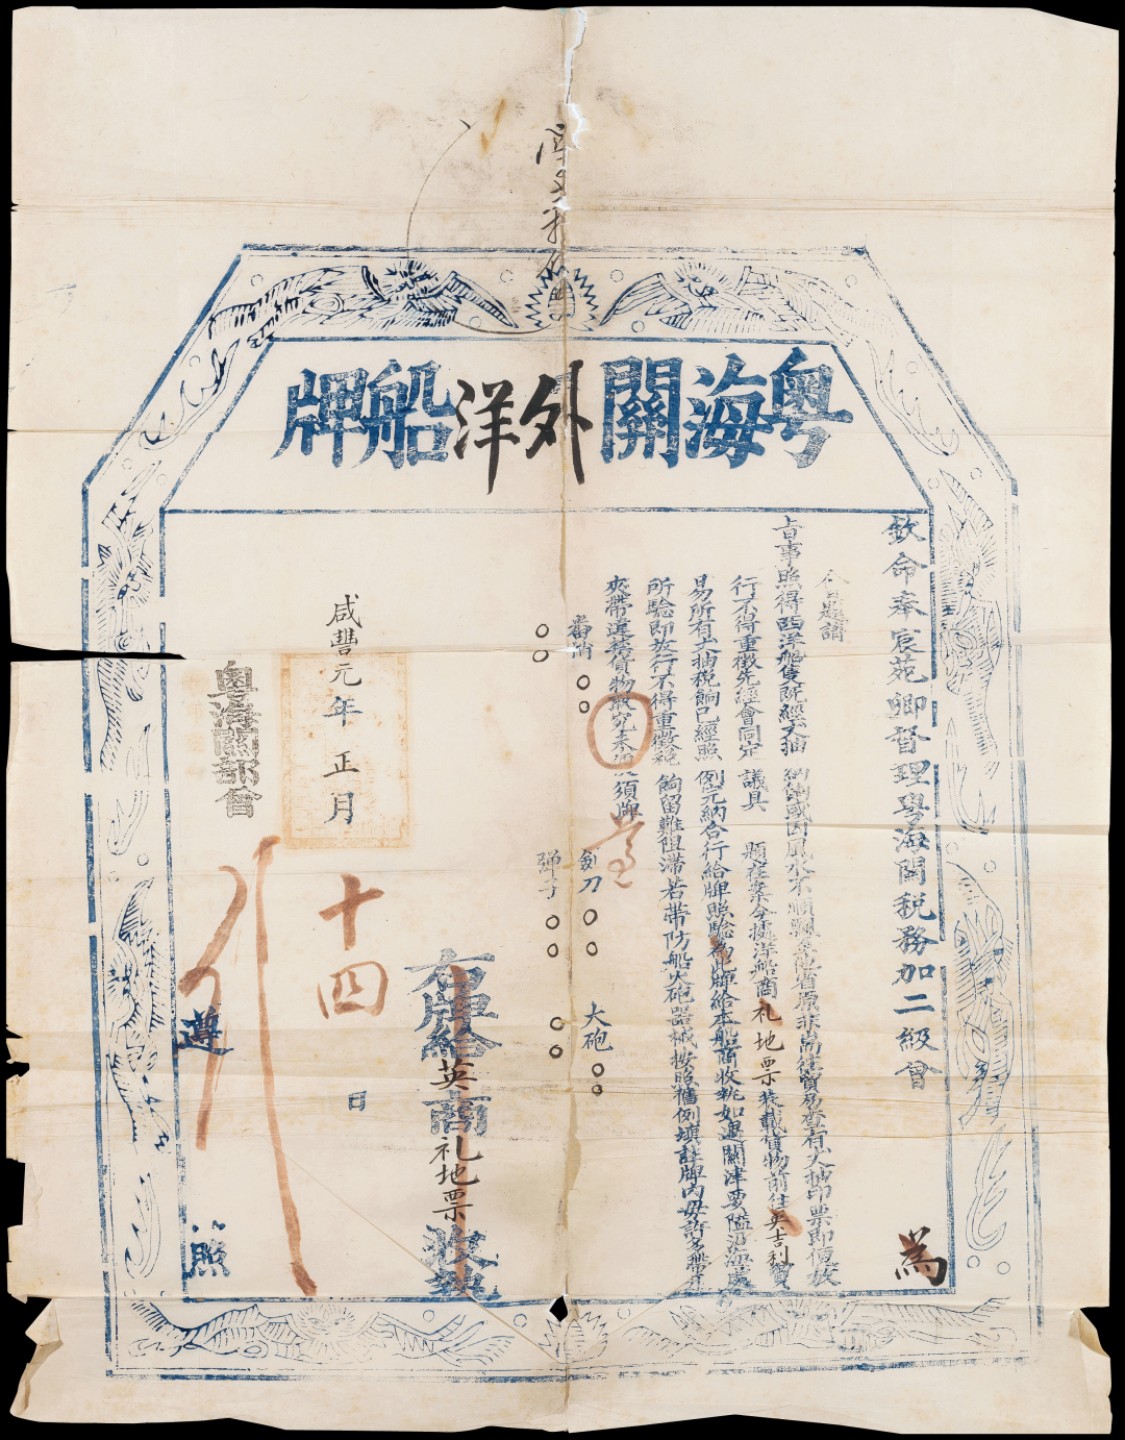 粵海關外洋船牌
欽命奉宸苑卿督理粵海關稅務加二級曾 為
會題請
旨事照得西洋船隻既經丈抽納餉或因風水不順飄至他省原非常往貿易查有丈抽印票即便放
行不得重徵先經會同定議具 題在案今據洋船商礼地票裝載貨物前往英吉利貿
易所有丈抽稅餉已經照例完納合行給牌照驗為此牌給本船商收執如遇關津要隘沿海處
所驗即放行不得重徵稅餉留難阻滯若帶防船火砲器械按照舊例填註牌內毋許多帶并
夾帶違禁貨物取究未便須牌
番梢 劍刀 大砲
彈子
右牌給英商礼地票收執
咸豐元年正月十四日
粵海關部曾
遵照